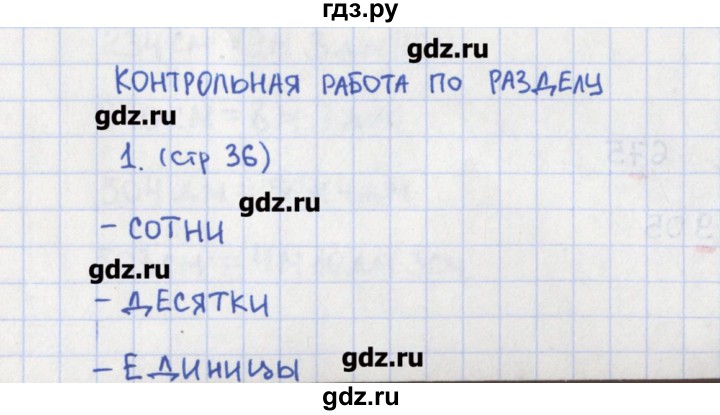 гдз.ру
gdz.ru
КОНТРОЛЬНАЯ РАБОТА ПО РАЗДЕЛУ
gdz.ru
1. (СТР 36)
gdz.ru
- СОТНИ
gdz.ru
- ДЕСЯТКИ
- ЕДИНИЦЫ
gdz.ru
gdz.ru